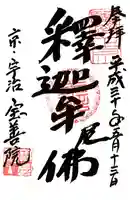 奉拝
平成三十年五月十三日
釋迦牟尼佛
京宇治
宝善院